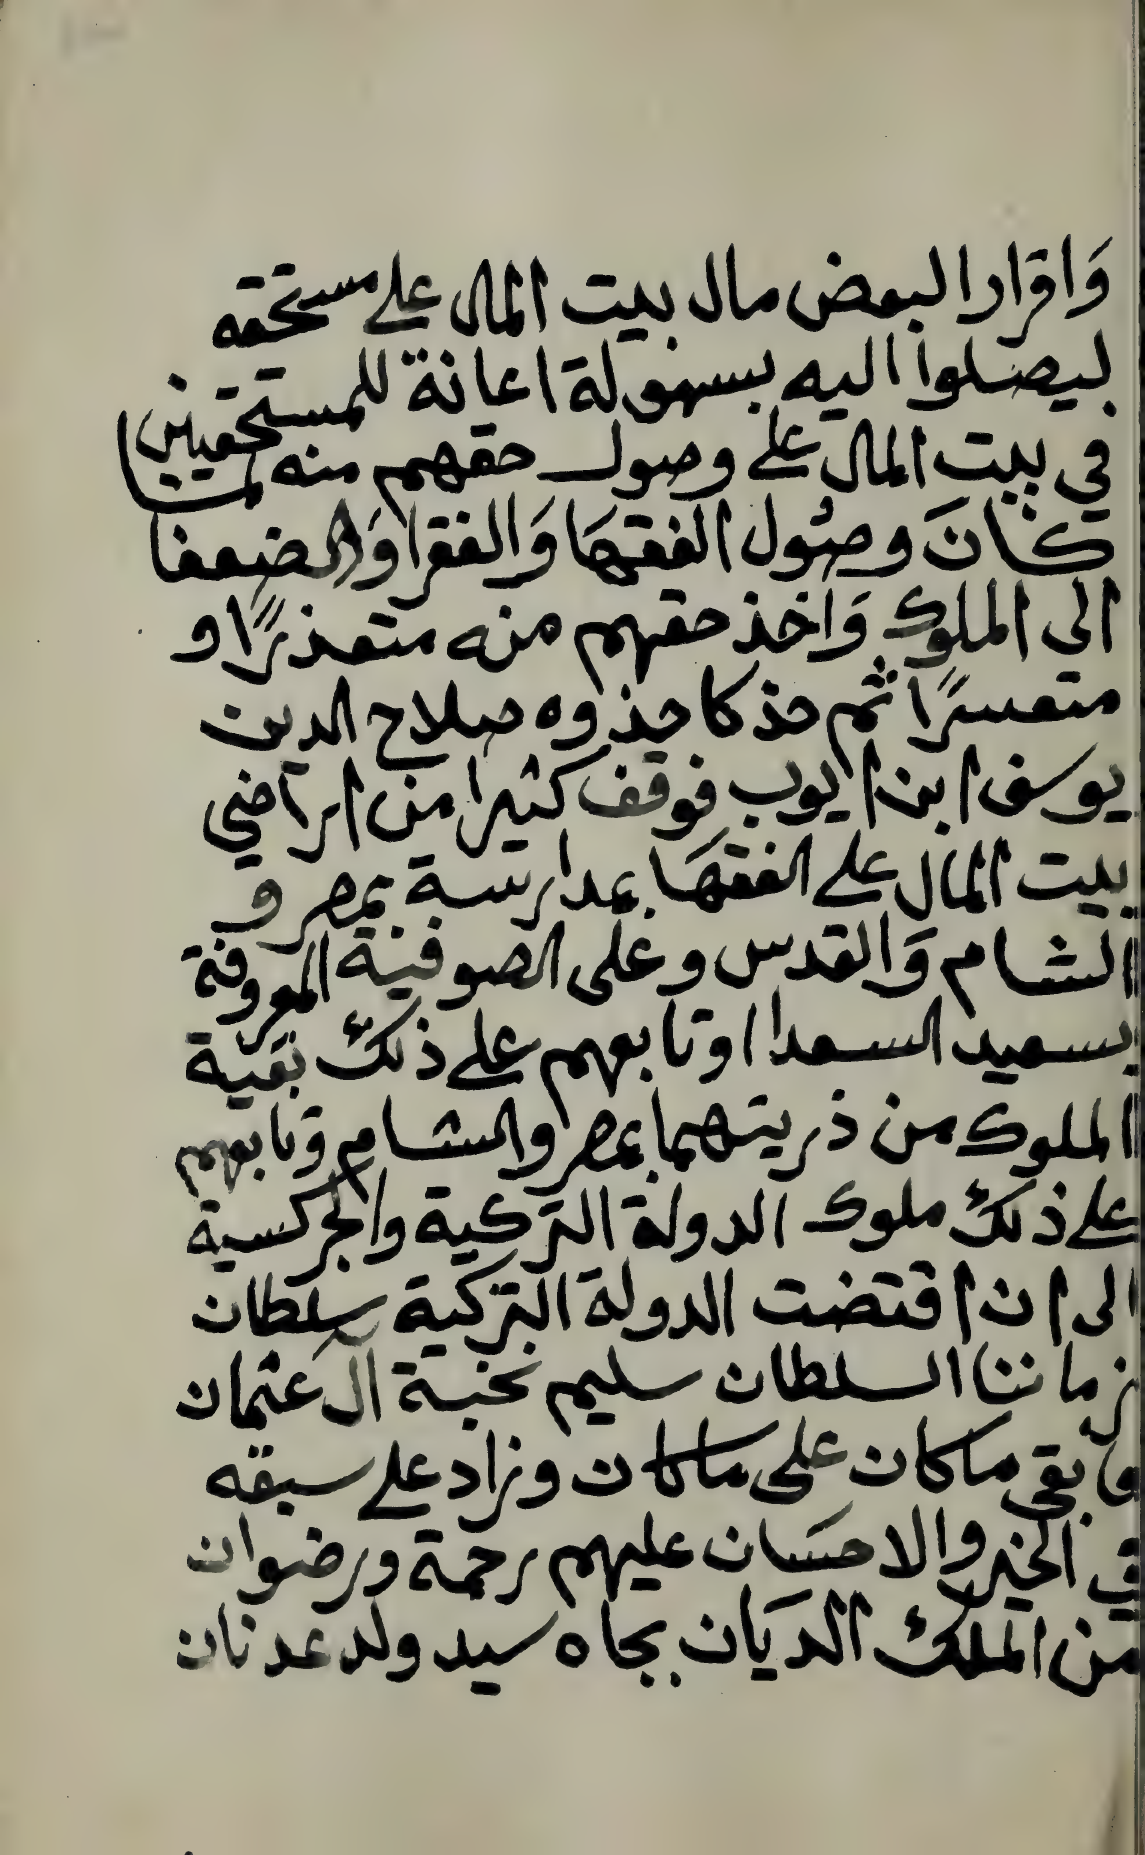 وَاقرار البعض مال بيت المال على مستحقه
ليصلوا اليه بسهولة اعانة للمستحقين
في بيت المال على وصول حقهم منه لما
كانَ وصُول الفقهَا وَالفقرا وَالضعفا
الى الملوك وَاخذ حقهم منه متعذرًا و
متعسرًا ثم حذ كا حذوه صلاح الدين
يوسف ابن ايوب فوقف كثيرا من اراضي
بيت المال على الفقهَا بمدارسة بمصر و
الشام وَالقدس وعلى الصوفية المعروفة
بسعيد السعدا وتابعهم على ذلك بقية
الملوك من ذريتهما بمصر والشام وتابعهم
على ذلك ملوك الدولة التركية والجركسية
الى ان اقتضت الدولة التركية سلطان
زماننا السلطان سليم نخبة آل عثمان
وابقى ماكان على ماكان وزاد على سبقه
في الخير والاحسَان عليهم رحمة ورضوان
من الملك الديَان بجاه سيد ولد عدنان